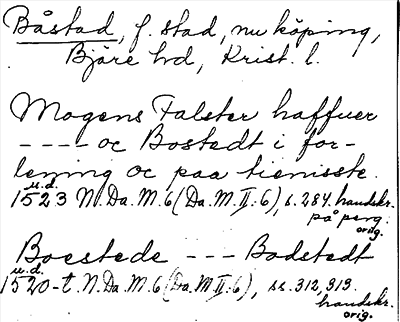 Båstad, f. stad, nu köping,
Bjäre hd, Krist. l.
Mogens Falster haffuer
---- oc Bostedt i for-
lening oc paa tienisste.
u.d.
1523 N. Da. M. 6 (Da. M. II: 6), s. 284. handskr.
på perg.
orig.
Boestede --- Badstedt
u.d.
1520-t. N. Da. M. 6 (Da. M. II: 6), ss. 312, 313.
handskr.
orig.